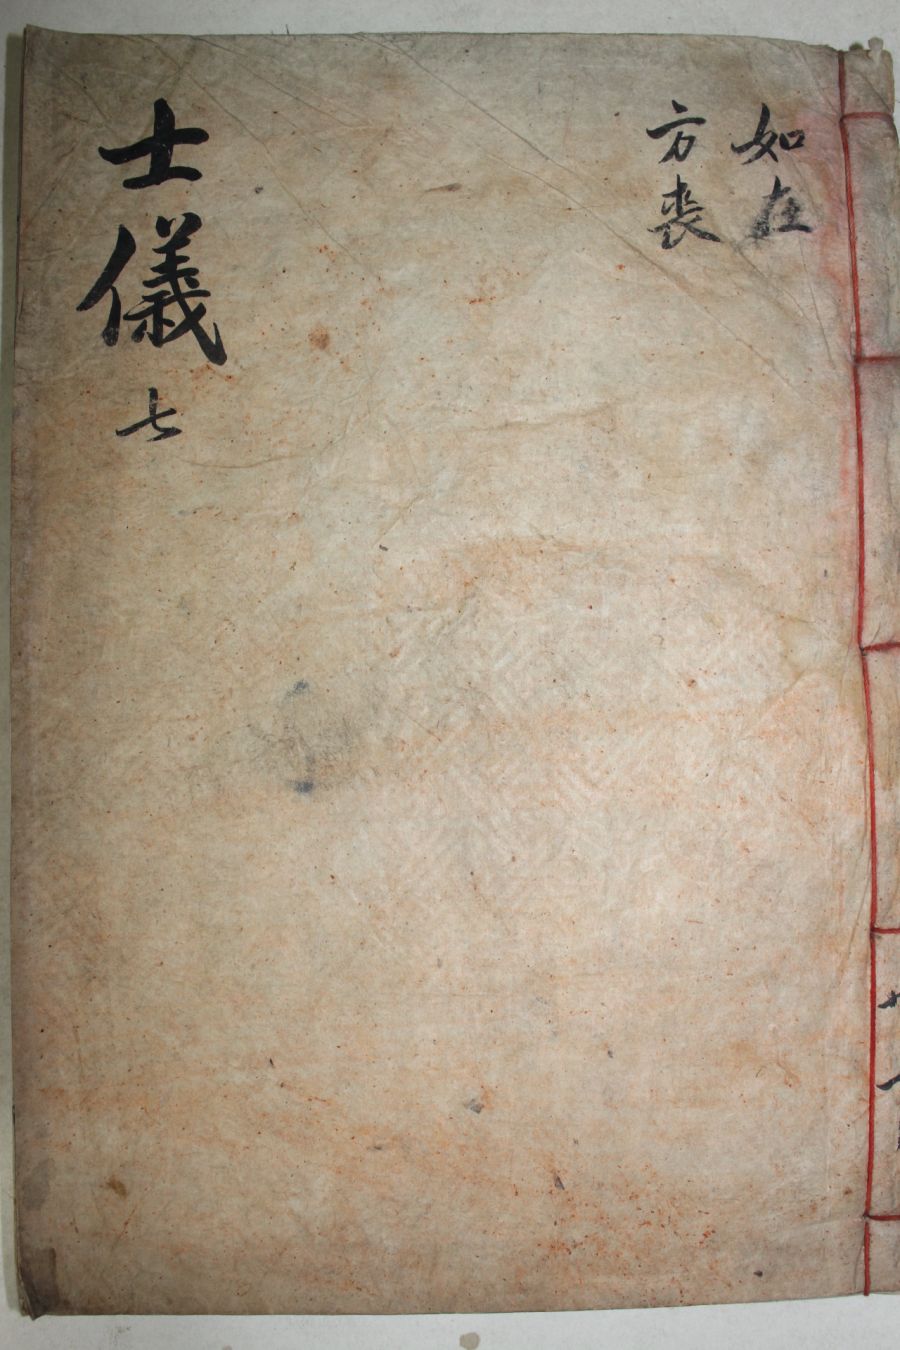 如在
方喪
士儀
七